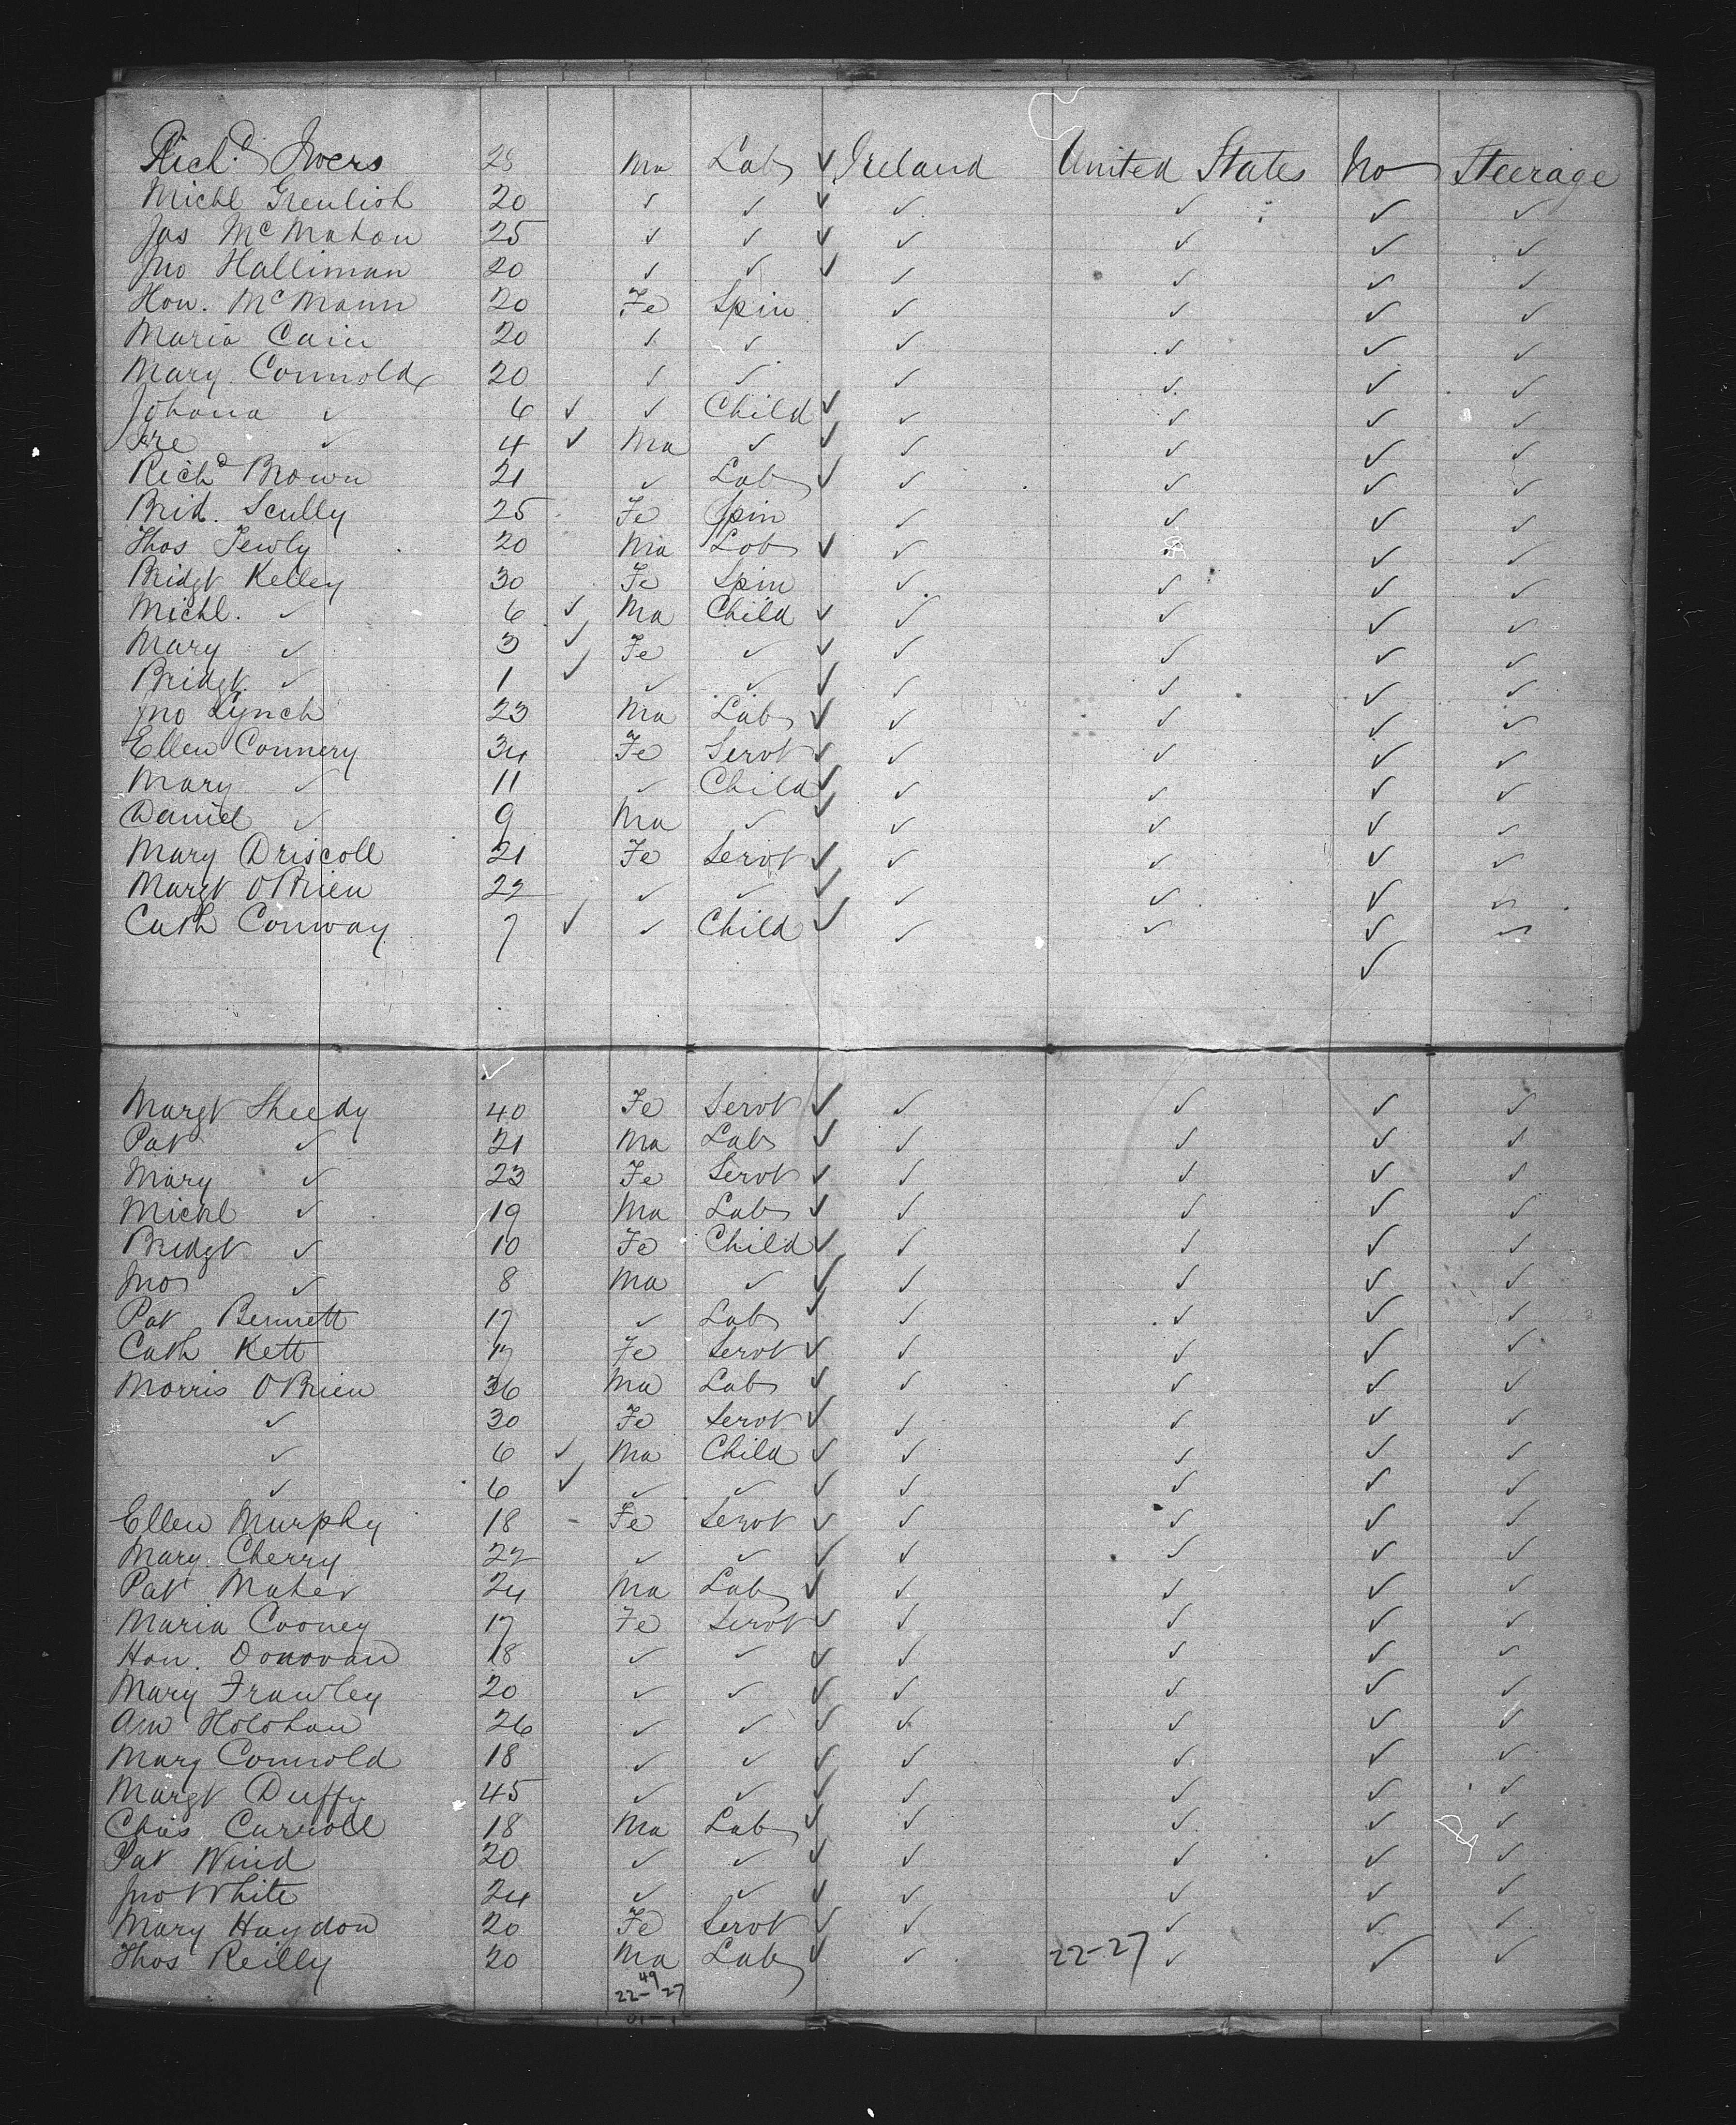 Richd Ivers 28 Ma Lab ✓ Ireland United States No Steerage
Michl Greulish 20 ✓ ✓ ✓ ✓ ✓ ✓ ✓
Jas McMahon 25 ✓ ✓ ✓ ✓ ✓ ✓ ✓
Jno Halliman 20 ✓ ✓ ✓ ✓ ✓ ✓ ✓
Hon. McMann 20 Fe Spin ✓ ✓ ✓ ✓
Maria Cain 20 ✓ ✓ ✓ ✓ ✓ ✓
Mary Connold 20 ✓ ✓ ✓ ✓ ✓ ✓
Johana ✓ 6 ✓ ✓ Child ✓ ✓ ✓ ✓ ✓
✓ 4 ✓ Ma ✓ ✓ ✓ ✓ ✓ ✓
Richd Brown 21 ✓ Lab ✓ ✓ ✓ ✓ ✓
Brid. Scully 25 Fe Spin ✓ ✓ ✓ ✓
Thos Fewly 20 Ma Lab ✓ ✓ ✓ ✓ ✓
Bridgt Kelley 30 Fe Spin ✓ ✓ ✓ ✓
Michl. ✓ 6 ✓ Ma Child ✓ ✓ ✓ ✓ ✓
Mary ✓ 3 ✓ Fe ✓ ✓ ✓ ✓ ✓ ✓
Bridgt ✓ 1 ✓ ✓ ✓ ✓ ✓ ✓ ✓ ✓
Jno Lynch 23 Ma Lab ✓ ✓ ✓ ✓ ✓
Ellen Connery 34 Fe Servt ✓ ✓ ✓ ✓ ✓
Mary ✓ 11 ✓ Child ✓ ✓ ✓ ✓ ✓
Daniel ✓ 9 Ma ✓ ✓ ✓ ✓ ✓ ✓
Mary Driscoll 21 Fe Servt ✓ ✓ ✓ ✓ ✓
Margt OBrien 22 ✓ ✓ ✓ ✓ ✓ ✓ ✓
Cath Conway 7 ✓ ✓ Child ✓ ✓ ✓ ✓ ✓
✓
Margt Sheedy 40 Fe Servt ✓ ✓ ✓ ✓ ✓
Pat ✓ 21 Ma Lab ✓ ✓ ✓ ✓ ✓
Mary ✓ 23 Fe Servt ✓ ✓ ✓ ✓ ✓
Michl ✓ 19 Ma Lab ✓ ✓ ✓ ✓ ✓
Bridgt ✓ 10 Fe Child ✓ ✓ ✓ ✓ ✓
Jno ✓ 8 Ma ✓ ✓ ✓ ✓ ✓ ✓
Pat Bennett 17 ✓ Lab ✓ ✓ ✓ ✓ ✓
Cath Kett 17 Fe Servt ✓ ✓ ✓ ✓ ✓
Morris OBrien 36 Ma Lab ✓ ✓ ✓ ✓ ✓
✓ 30 Fe Servt ✓ ✓ ✓ ✓ ✓
✓ 6 ✓ Ma Child ✓ ✓ ✓ ✓ ✓
✓ 6 ✓ ✓ ✓ ✓ ✓ ✓ ✓ ✓
Ellen Murphy 18 Fe Servt ✓ ✓ ✓ ✓ ✓
Mary Cherry 22 ✓ ✓ ✓ ✓ ✓ ✓ ✓
Pat Maher 24 Ma Lab ✓ ✓ ✓ ✓ ✓
Maria Cooney 17 Fe Servt ✓ ✓ ✓ ✓ ✓
Hon. Donovan 18 ✓ ✓ ✓ ✓ ✓ ✓ ✓
Mary Frawley 20 ✓ ✓ ✓ ✓ ✓ ✓ ✓
Ann Holohan 26 ✓ ✓ ✓ ✓ ✓ ✓ ✓
Mary Connold 18 ✓ ✓ ✓ ✓ ✓ ✓ ✓
Margt Duffy 45 ✓ ✓ ✓ ✓ ✓ ✓ ✓
Chas Carroll 18 Ma Lab ✓ ✓ ✓ ✓ ✓
Pat Wind 20 ✓ ✓ ✓ ✓ ✓ ✓ ✓
Jno White 24 ✓ ✓ ✓ ✓ ✓ ✓ ✓
Mary Haydon 20 Fe Servt ✓ ✓ ✓ ✓ ✓
Thos Reilly 20 Ma Lab ✓ ✓ 22-27 ✓ ✓ ✓
49
22-27